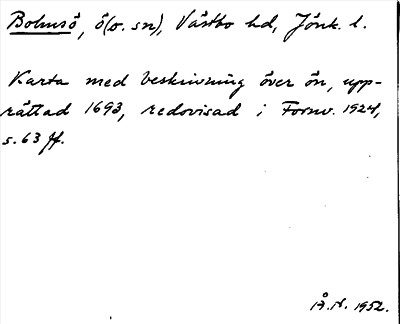 Bolmsö, ö (o. sn), Västbo hd, Jönk. l.
Karta med beskrivning över ön, upp-
rättad 1693, redovisad i Fornv. 1924,
s. 63 ff.
Å.N. 1952.